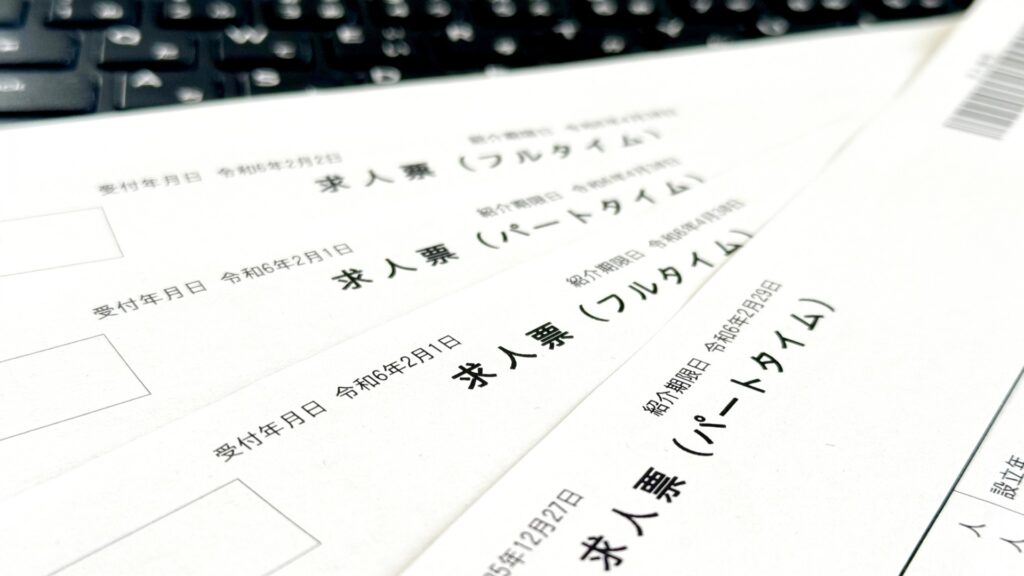 Q W E
A S D
受付年月日 令和6年2月2日
求人票（フルタイム）
受付年月日 令和6年2月1日
紹介期限日
求人票（パートタイム）
受付年月日 令和6年2月1日
紹介期限日 令和6年4月30日
求人票（フルタイム）
5年12月27日
紹介期限日 令和6年2月29日
求人票（パートタイム）
設立年
人
人